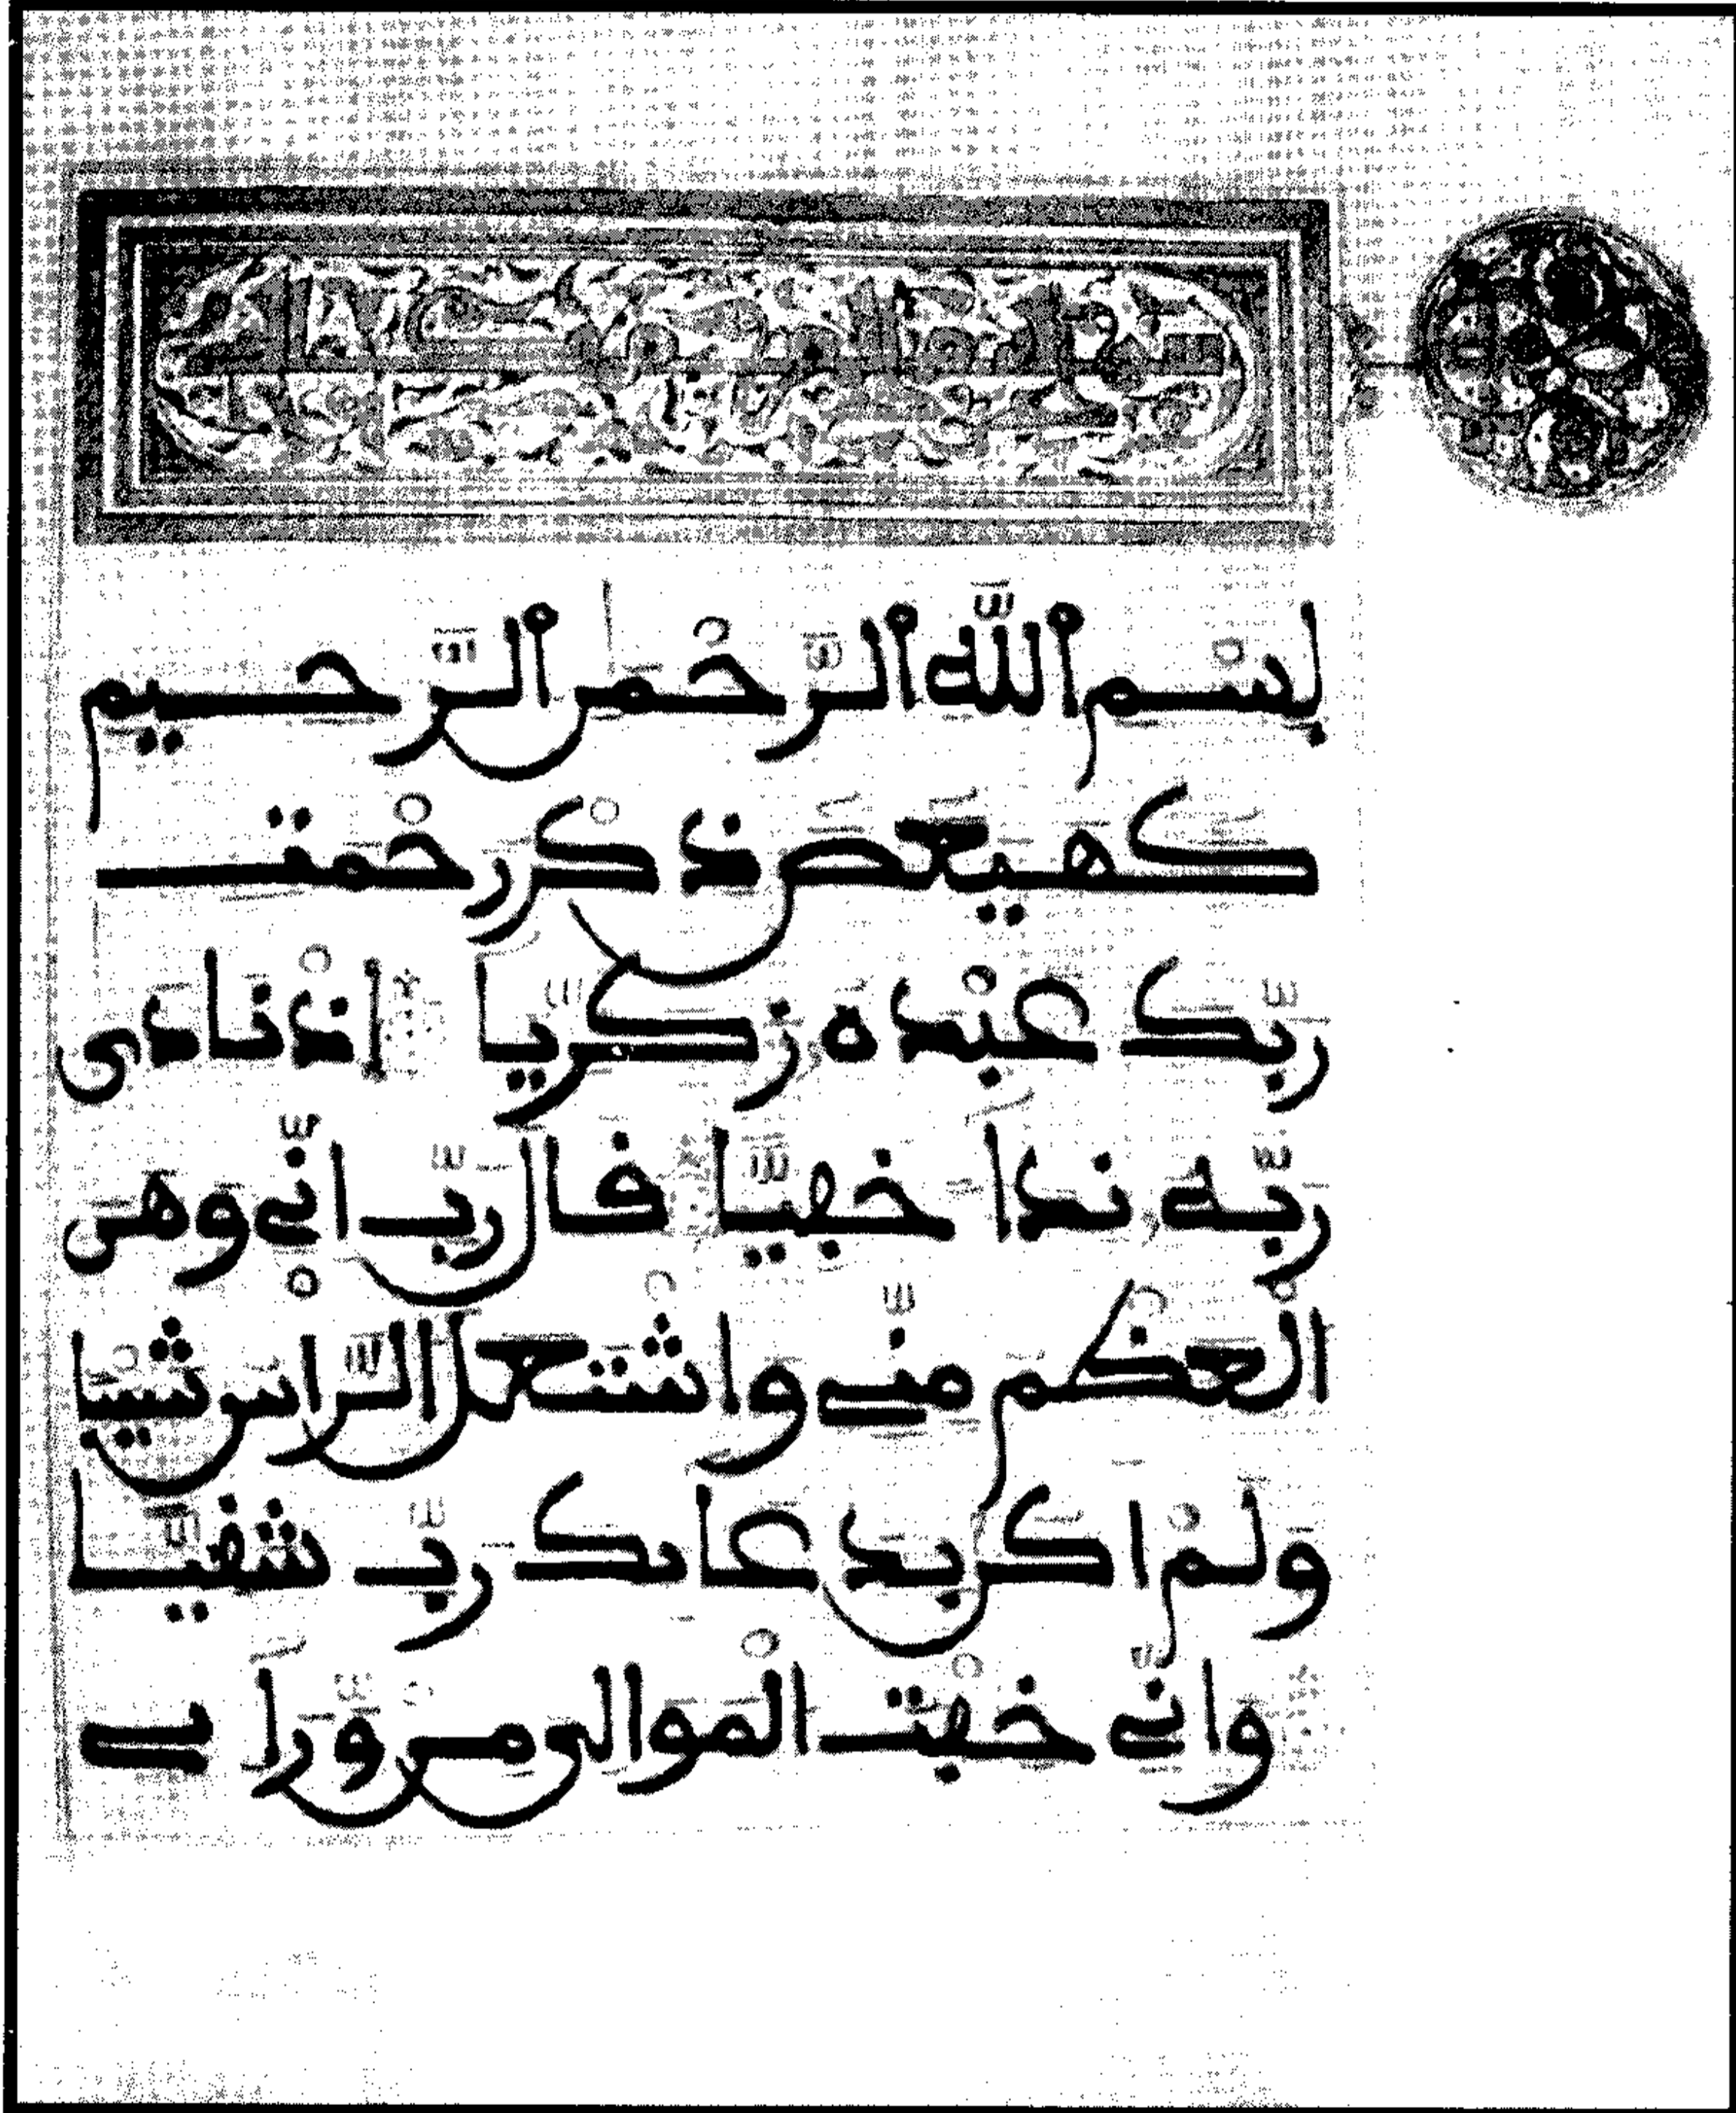 بسم الله الرحمن الرحيم
كهيعص ذكر رحمت
ربك عبده زكريا اذ نادى
ربه نداء خفيا قال رب اني وهن
العظم مني واشتعل الراس شيبا
ولم اكن بدعائك رب شقيا
واني خفت الموالي من وراءي